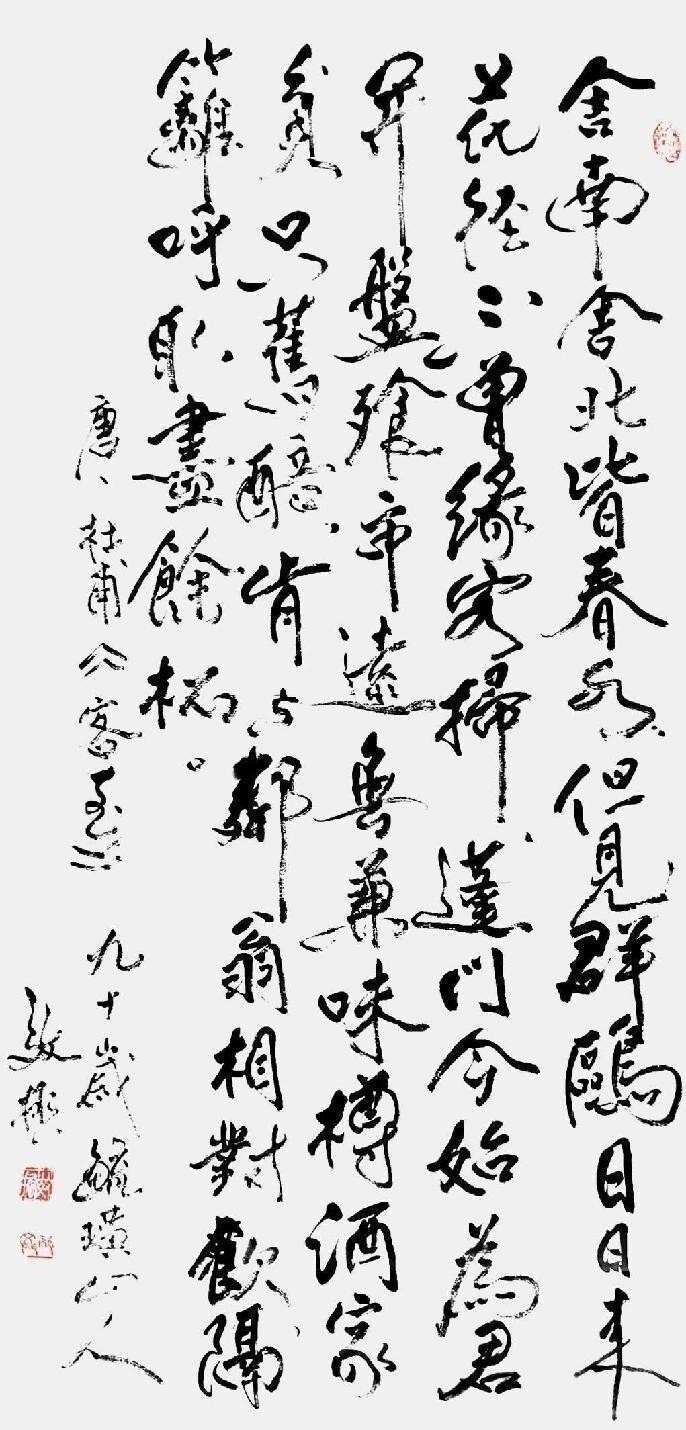 舍南舍北皆春水但見群鷗日日来
花径不曾緣客掃蓬門今始為君
開盤飧市遠無兼味樽酒家
貧只舊醅肯与鄰翁相對飲隔
籬呼取盡餘杯。
唐、杜甫《客至》 九十歲 璜山人